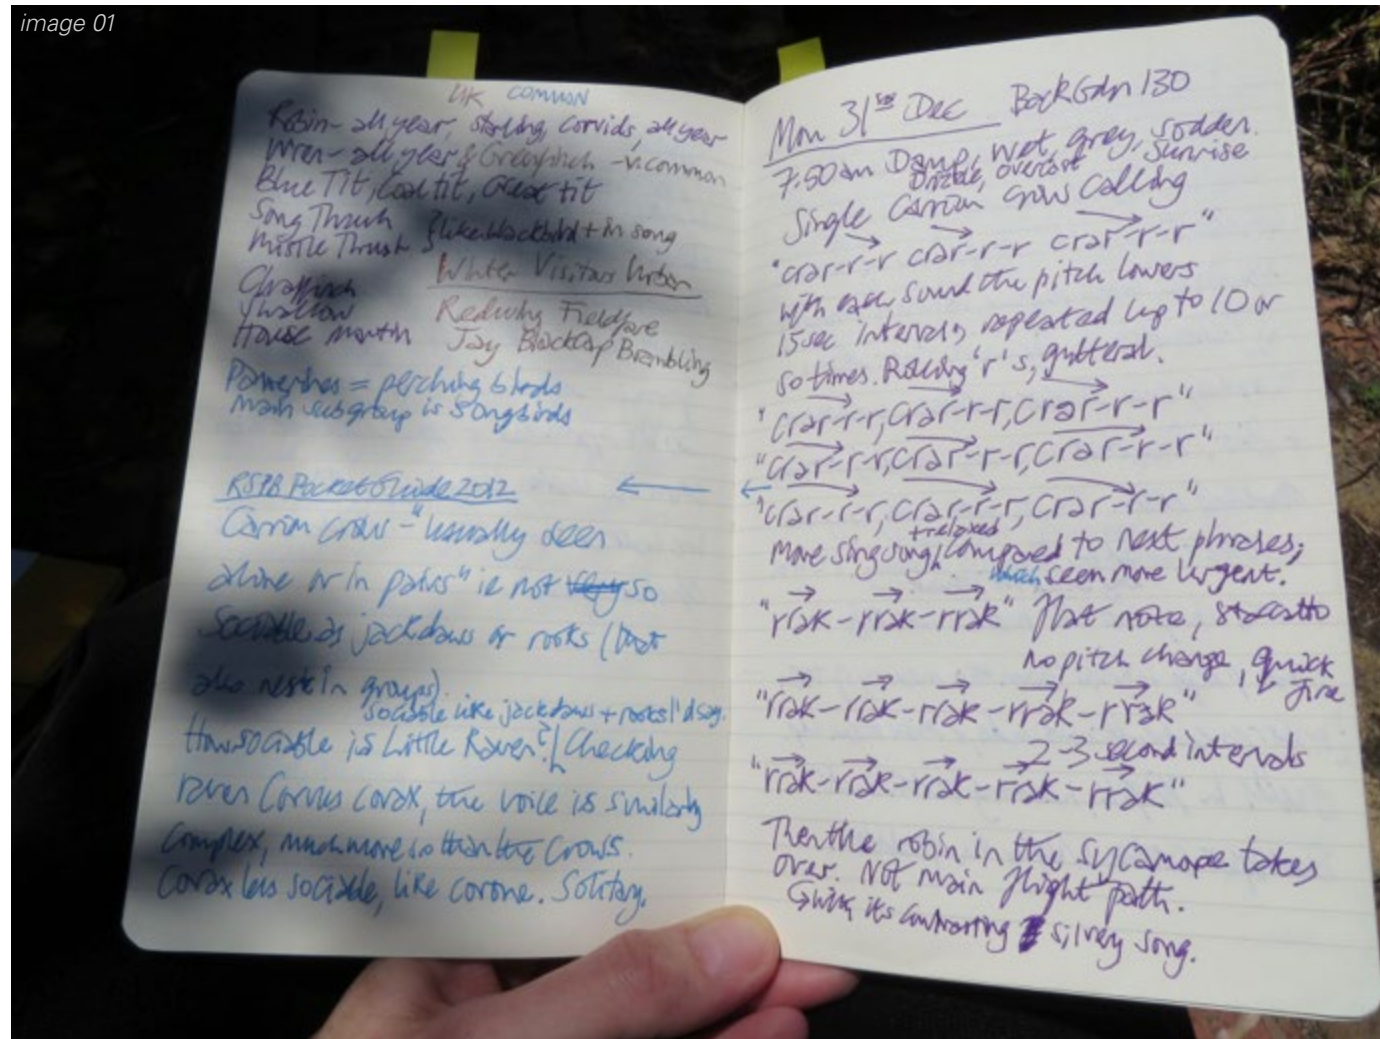 image 01
UK COMMON
Robin - all year, starling, corvids, all year
Wren - all year & Greenfinch - v. common
Blue Tit, Coal tit, Great tit
Song Thrush
Mistle Thrush { like blackbird + in song
Winter Visitors Urban
Chaffinch
Swallow
House martin
Redwing Fieldfare
Jay BlackCap Brambling
Passerines = perching birds
main subgroup is songbirds
RSPB Pocket Guide 2012 ←
Carrion crow - "usually seen
alone or in pairs" ie not very so
sociable as jackdaws or rooks (that
also nest in groups).
sociable like jackdaws + rooks I'd say.
How sociable is Little Raven? [Checking
raven Corvus corax, the voice is similarly
complex, much more so than the crows.
Corax less sociable, like corone. Solitary.
Mon 31st Dec Back Gdn 130
7.50am Damp, wet, grey, sodden.
Drizzle, overcast Sunrise
Single Carrion Crow Calling
"crar-r-r crar-r-r crar-r-r"
with each sound the pitch lowers
15sec intervals, repeated up to 10 or
so times. Rolling 'r's, gutteral.
"crar-r-r, crar-r-r, crar-r-r"
"crar-r-r, crar-r-r, crar-r-r"
← "crar-r-r, crar-r-r, crar-r-r"
+ relaxed
More sing song, compared to next phrases;
which seem more urgent.
"rrak-rrak-rrak" flat note, staccato
no pitch change, quick
fire
"rrak-rrak-rrak-rrak-rrak"
2-3 second intervals
"rrak-rrak-rrak-rrak-rrak"
Then the robin in the sycamore takes
over. Not main flight path.
Giving its contrasting silvery song.